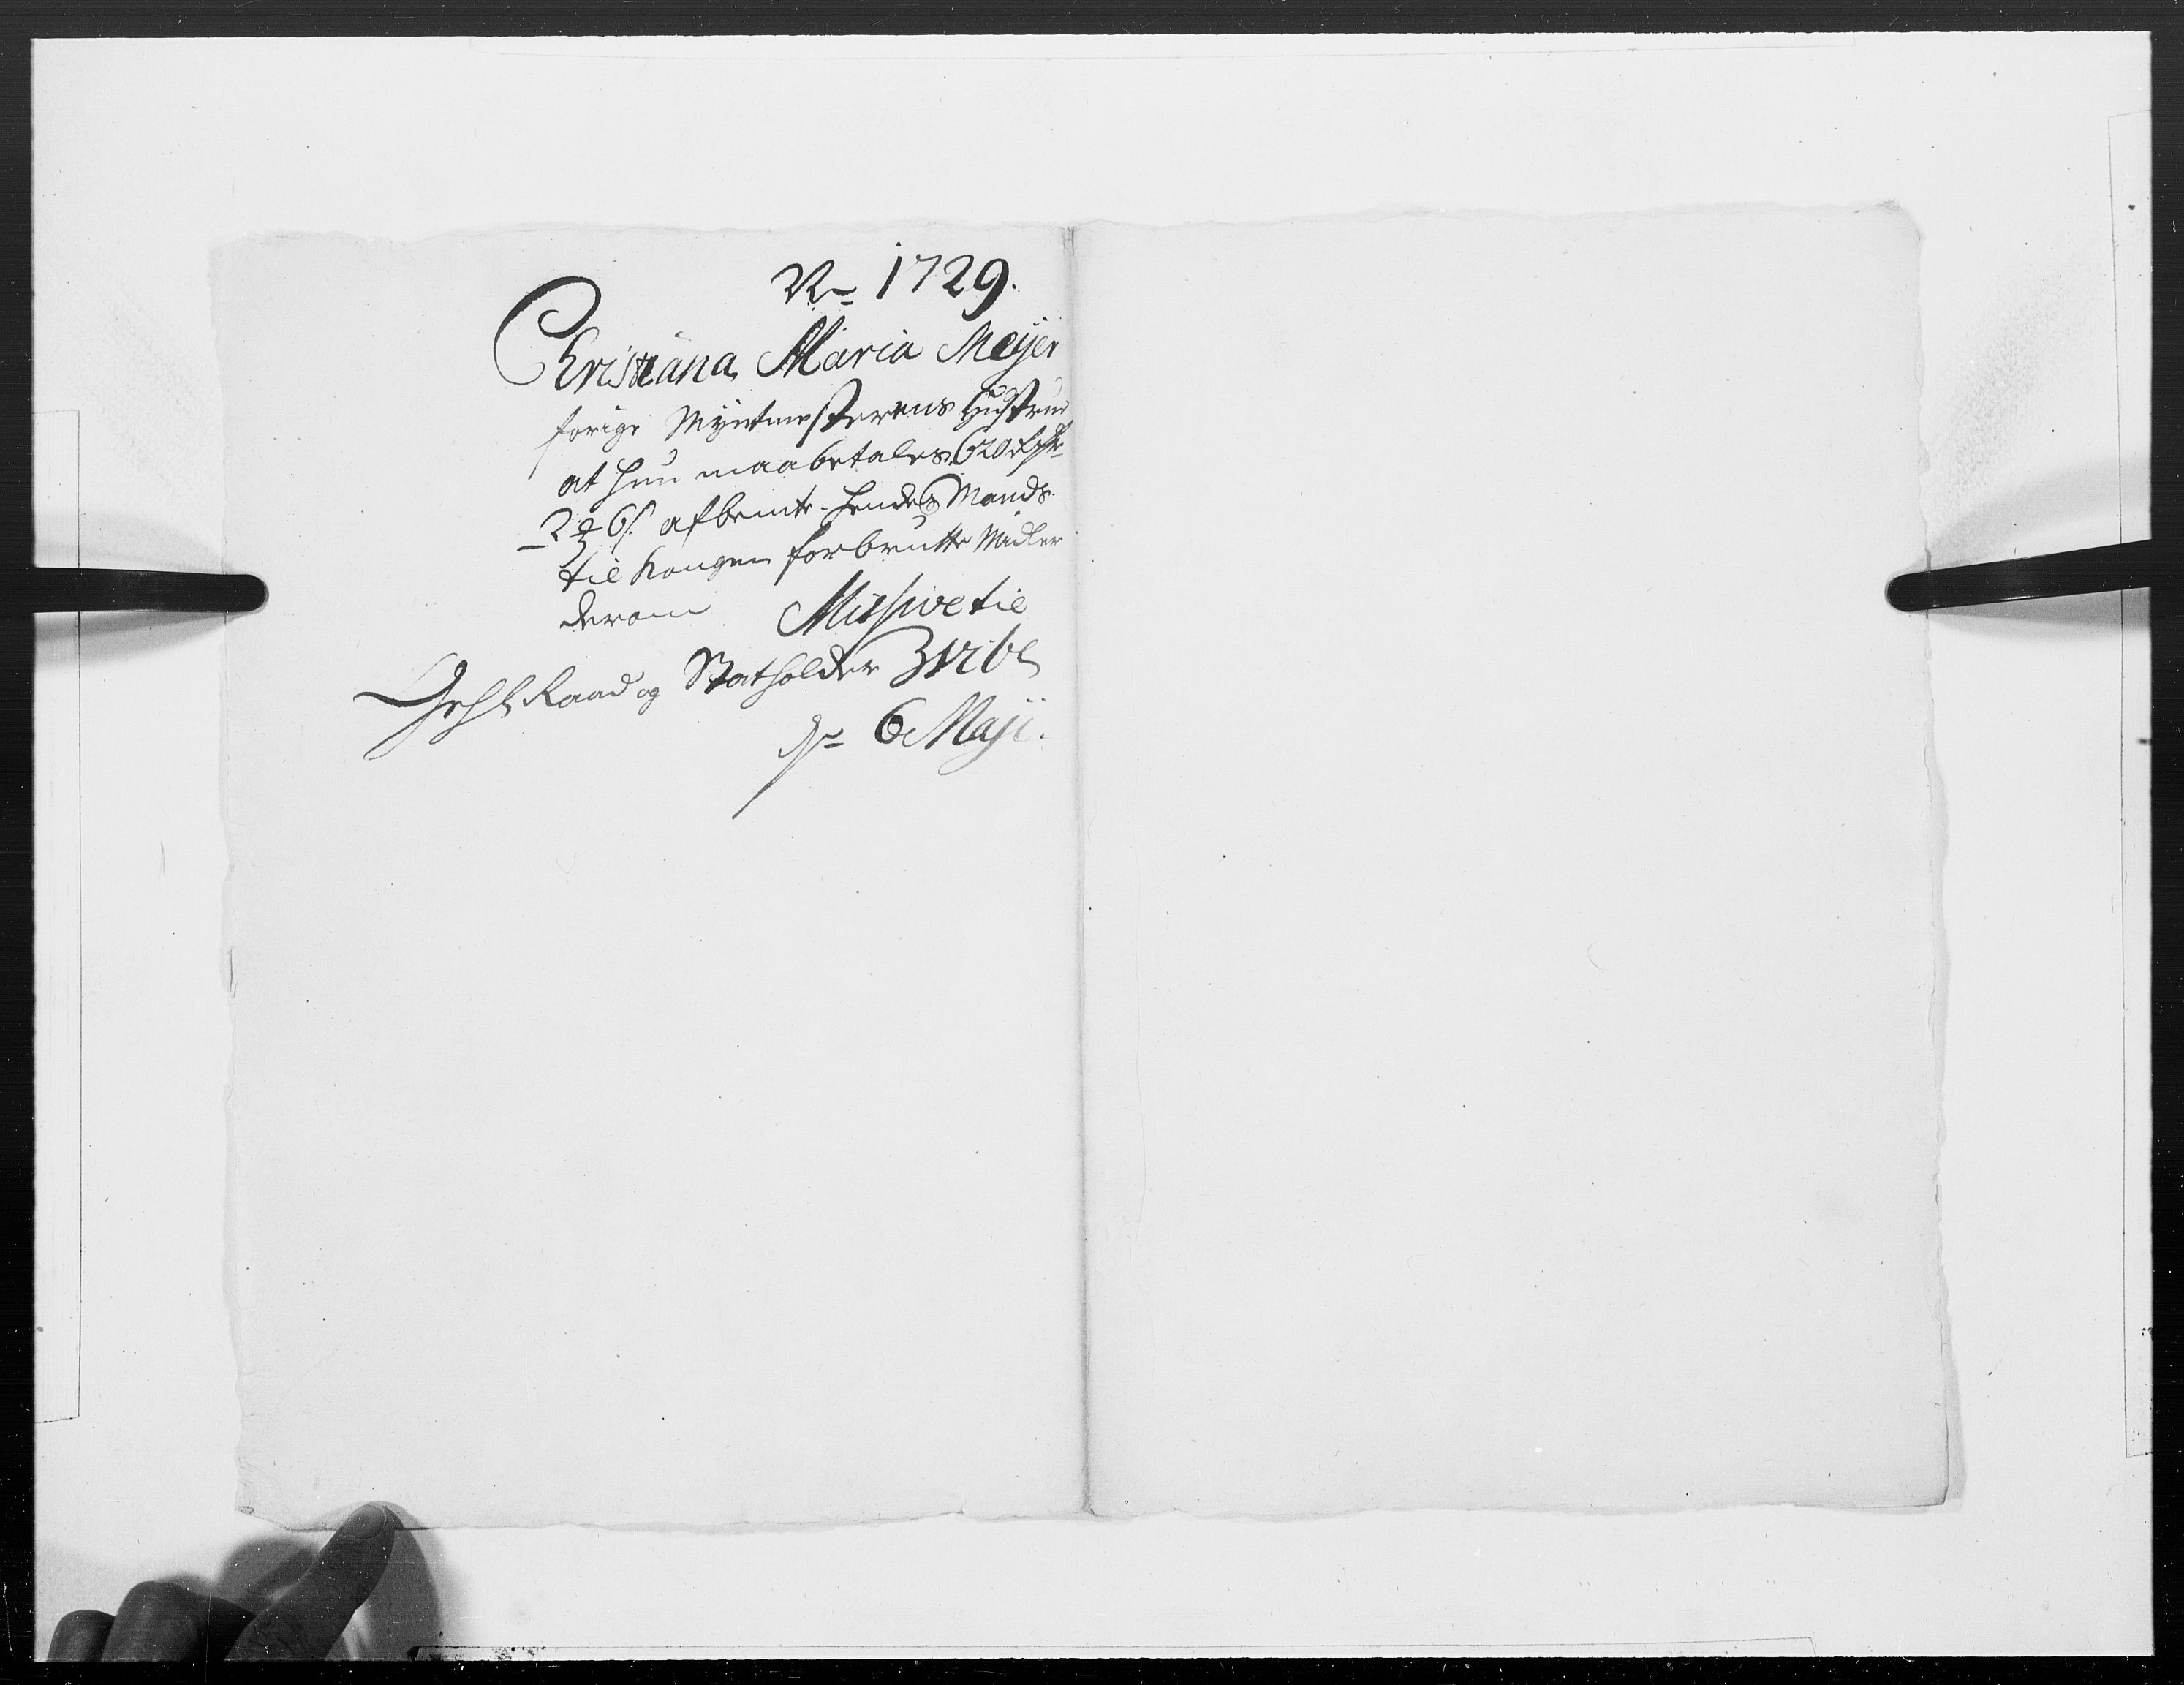 No 1729.
Christiana Maria Meijer
forige Myntmesterens Hustrue
at hun maa betales 620 rdr
2 ℔ 6 s. af bemte. hendes Mands
til Kongen forbrutte Midler
derom Missive til
Geh: Raad og Statholder Wibe
dn 6 Maji.